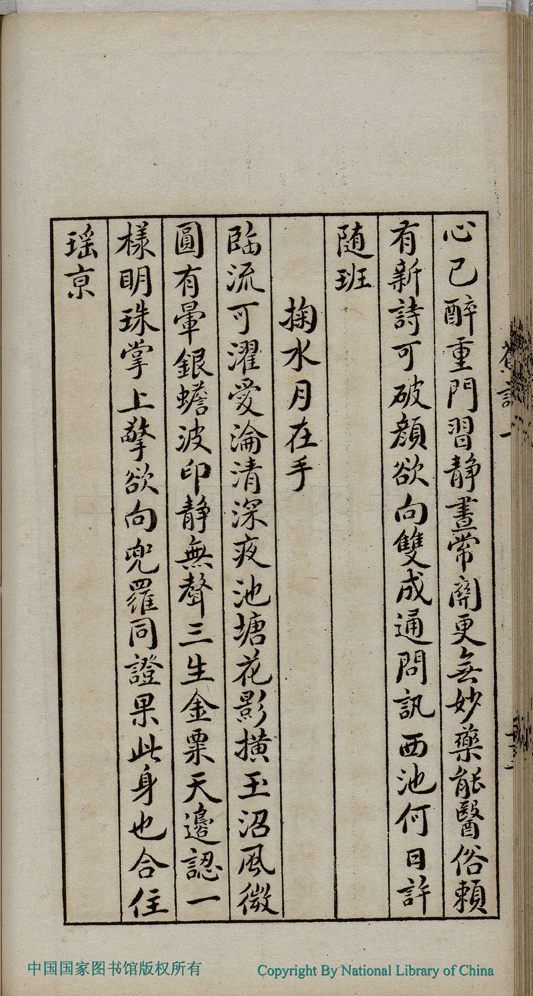 心已醉重門習靜晝常關更無妙藥能醫俗賴
有新詩可破顏欲向雙成通問訊西池何日許
随班
掬水月在手
臨流可濯愛淪清深夜池塘花影横玉沼風微
圓有暈銀蟾波印靜無聲三生金粟天邊認一
樣明珠掌上擎欲向兜羅同證果此身也合住
瑶京
中国国家图书馆版权所有
Copyright By National Library of China